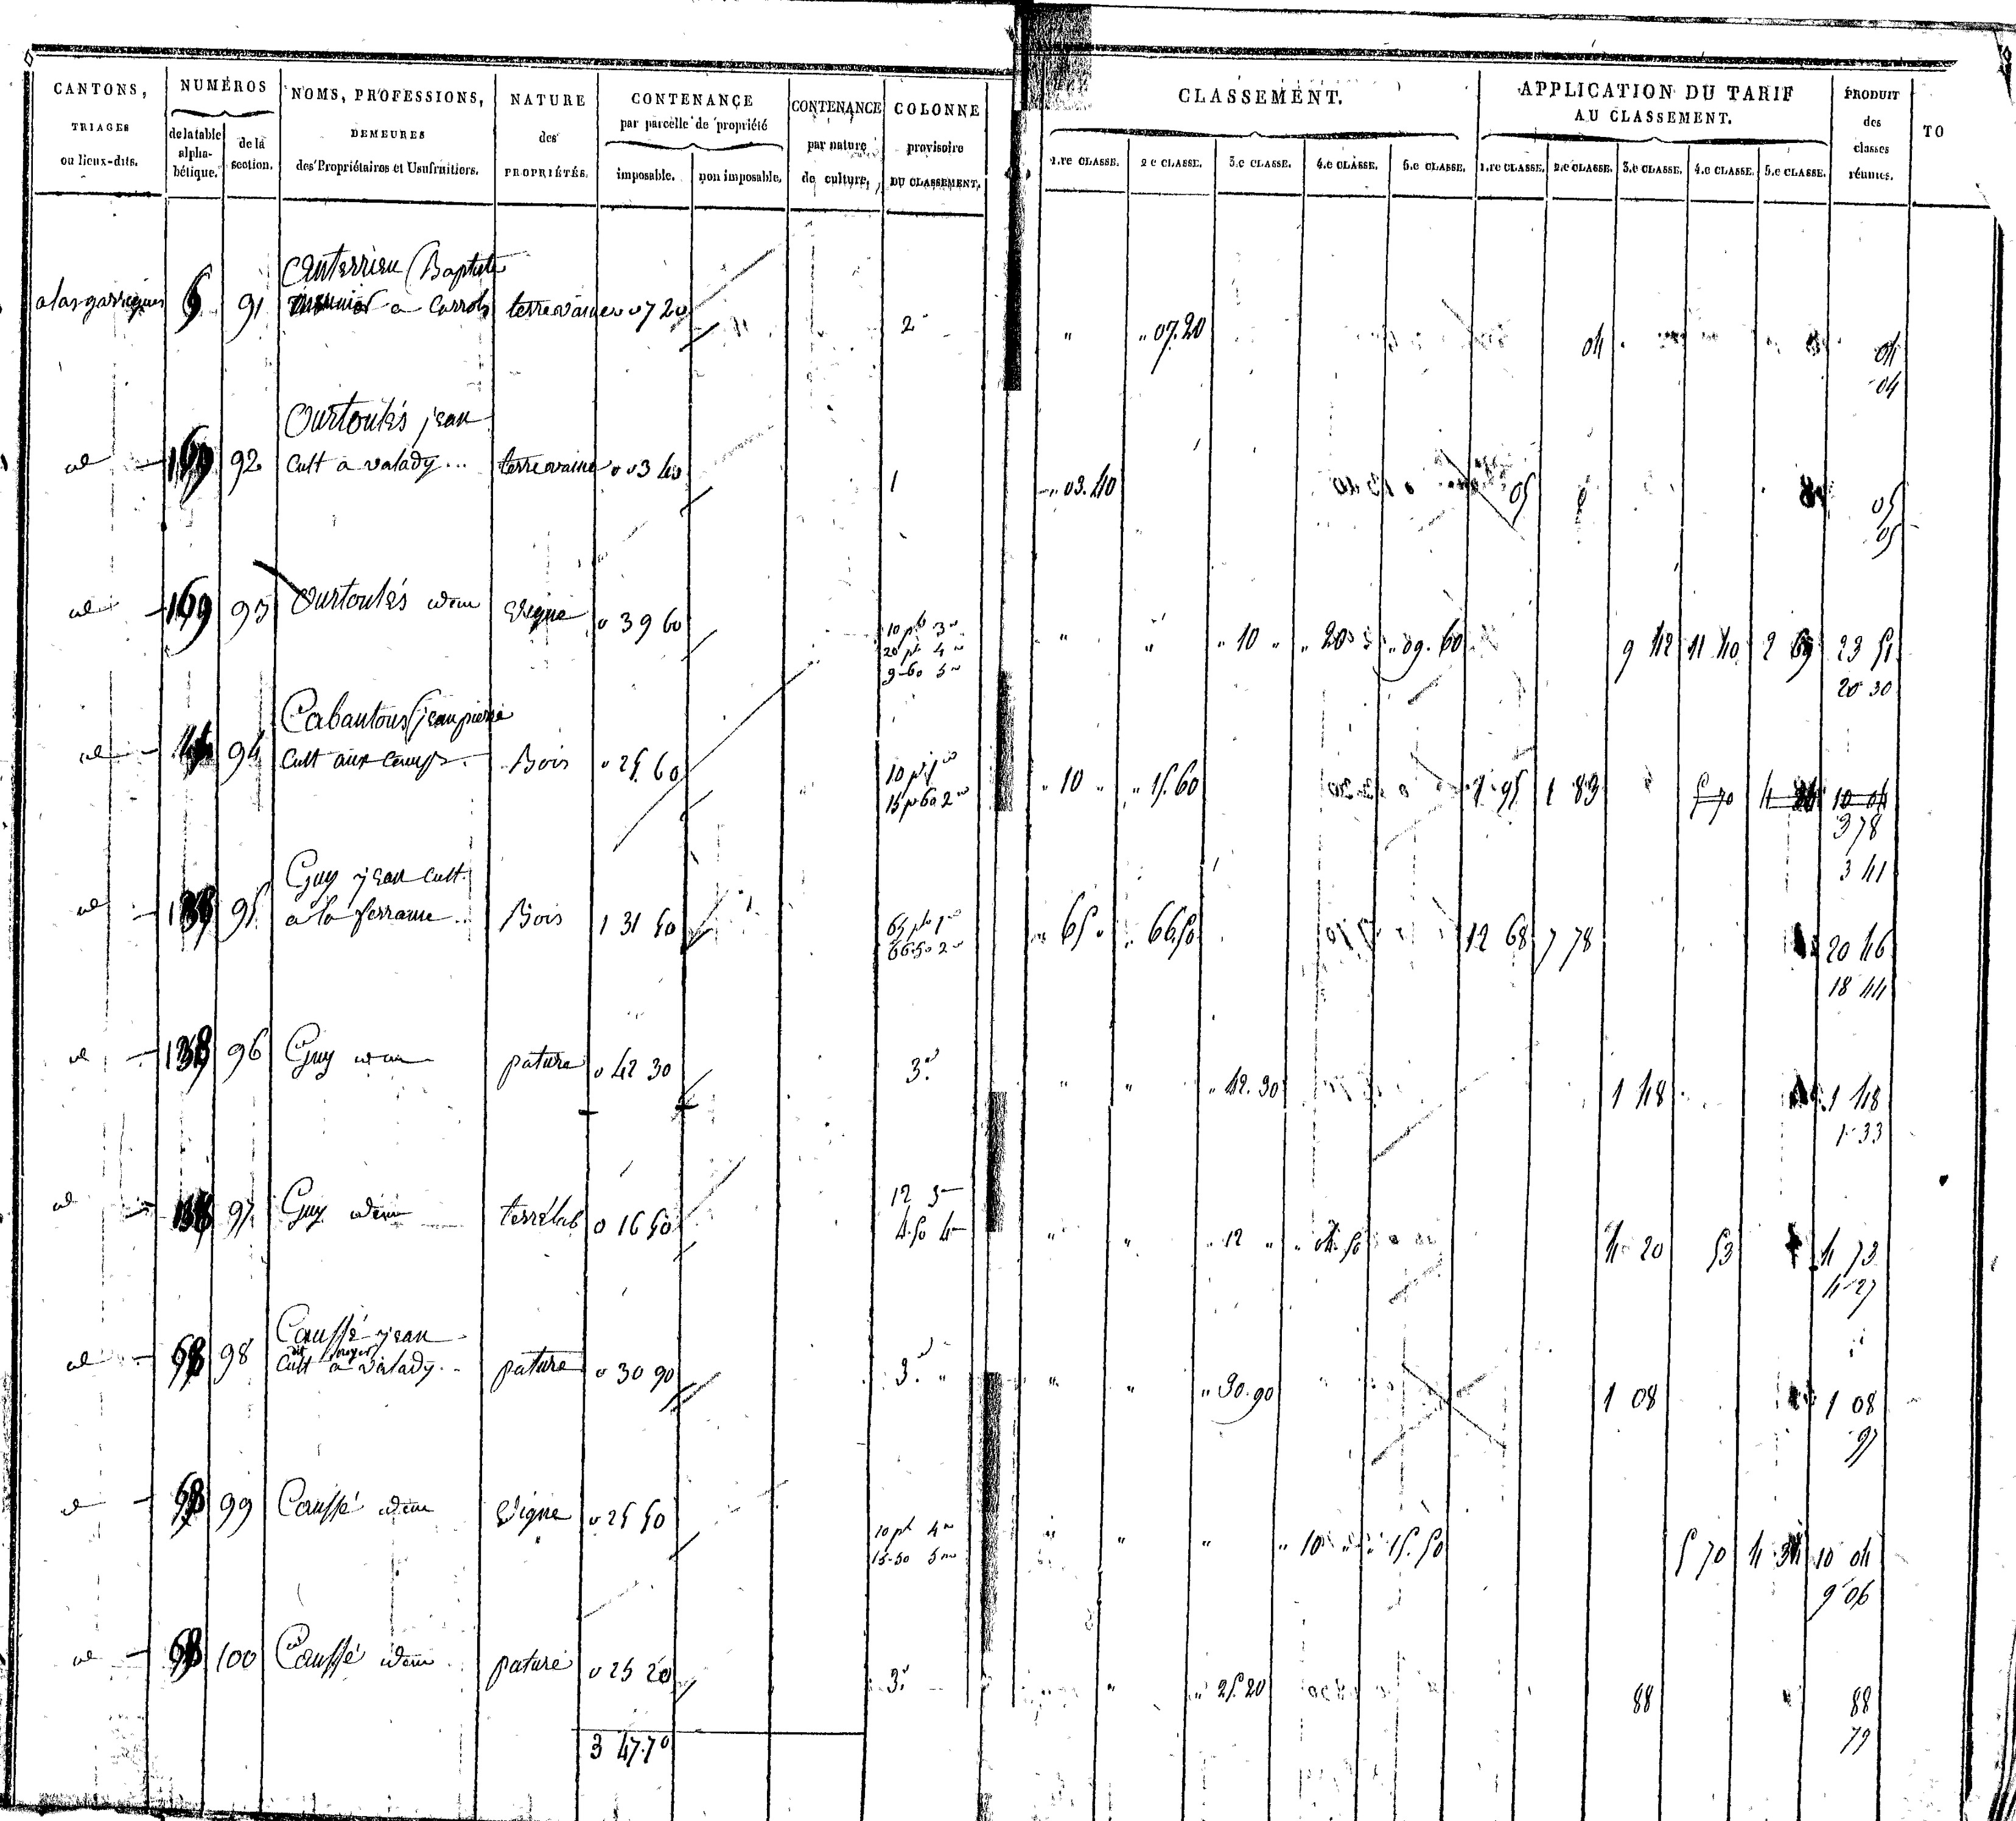 CANTONS, TRIAGES ou lieux-dits. NUMÉROS de la table alphabétique. de la section. NOMS, PROFESSIONS, DEMEURES des Propriétaires et Usufruitiers. NATURE des PROPRIÉTÉS. CONTENANCE par parcelle de propriété imposable. non imposable. CONTENANCE par nature de culture. COLONNE provisoire DU CLASSEMENT. CLASSEMENT. 1.re CLASSE. 2.e CLASSE. 3.e CLASSE. 4.e CLASSE. 5.e CLASSE. APPLICATION DU TARIF AU CLASSEMENT. 1.re CLASSE. 2.e CLASSE. 3.e CLASSE. 4.e CLASSE. 5.e CLASSE. PRODUIT des classes réunies. TO
Baptiste
a las garrigues 91 terre vaine 0 07 20 2 " " 07.20 04 04
04
Ourtoulés jean
id 169 92 Cult a valady terre vaine 0 03 40 1 " 03.40 05 05
05
id 169 93 Ourtoulés idem Vigne 0 39 60 10 pr 3 " " " 10 " " 20 " 09.60 9 42 11 40 2 69 23 51
20 pr 4 20 30
9-60 5
Cabantous jean pierre
id 94 Cult aux Bois 0 25 60 10 pr 1 " 10 " " 15.60 1 95 1 83 5 70 4 34 10 04
15 pr 60 2 3 78
3 41
Guy jean cult.
id 138 95 a la Bois 1 31 50 65 pr 1 " 65 " " 66.50 12 68 7 78 20 46
66-50 2 18 44
id 138 96 Guy idem pature 0 42 30 3. " " " 42.30 1 48 1 48
1 33
id 138 97 Guy idem terre lab 0 16 50 12 3 " " " 12 " " 04.50 4 20 53 4 73
4.50 4 4 27
Caussé jean
dit
id 68 98 Cult a valady pature 0 30 90 3. " " " 30.90 1 08 1 08
97
id 68 99 Caussé idem Vigne 0 25 50 10 pr 4 " " " " 10 " 15.50 5 70 4 34 10 04
15-50 5 9 06
id 68 100 Caussé idem pature 0 25 20 3. " " 25.20 88 88
79
3 47.70